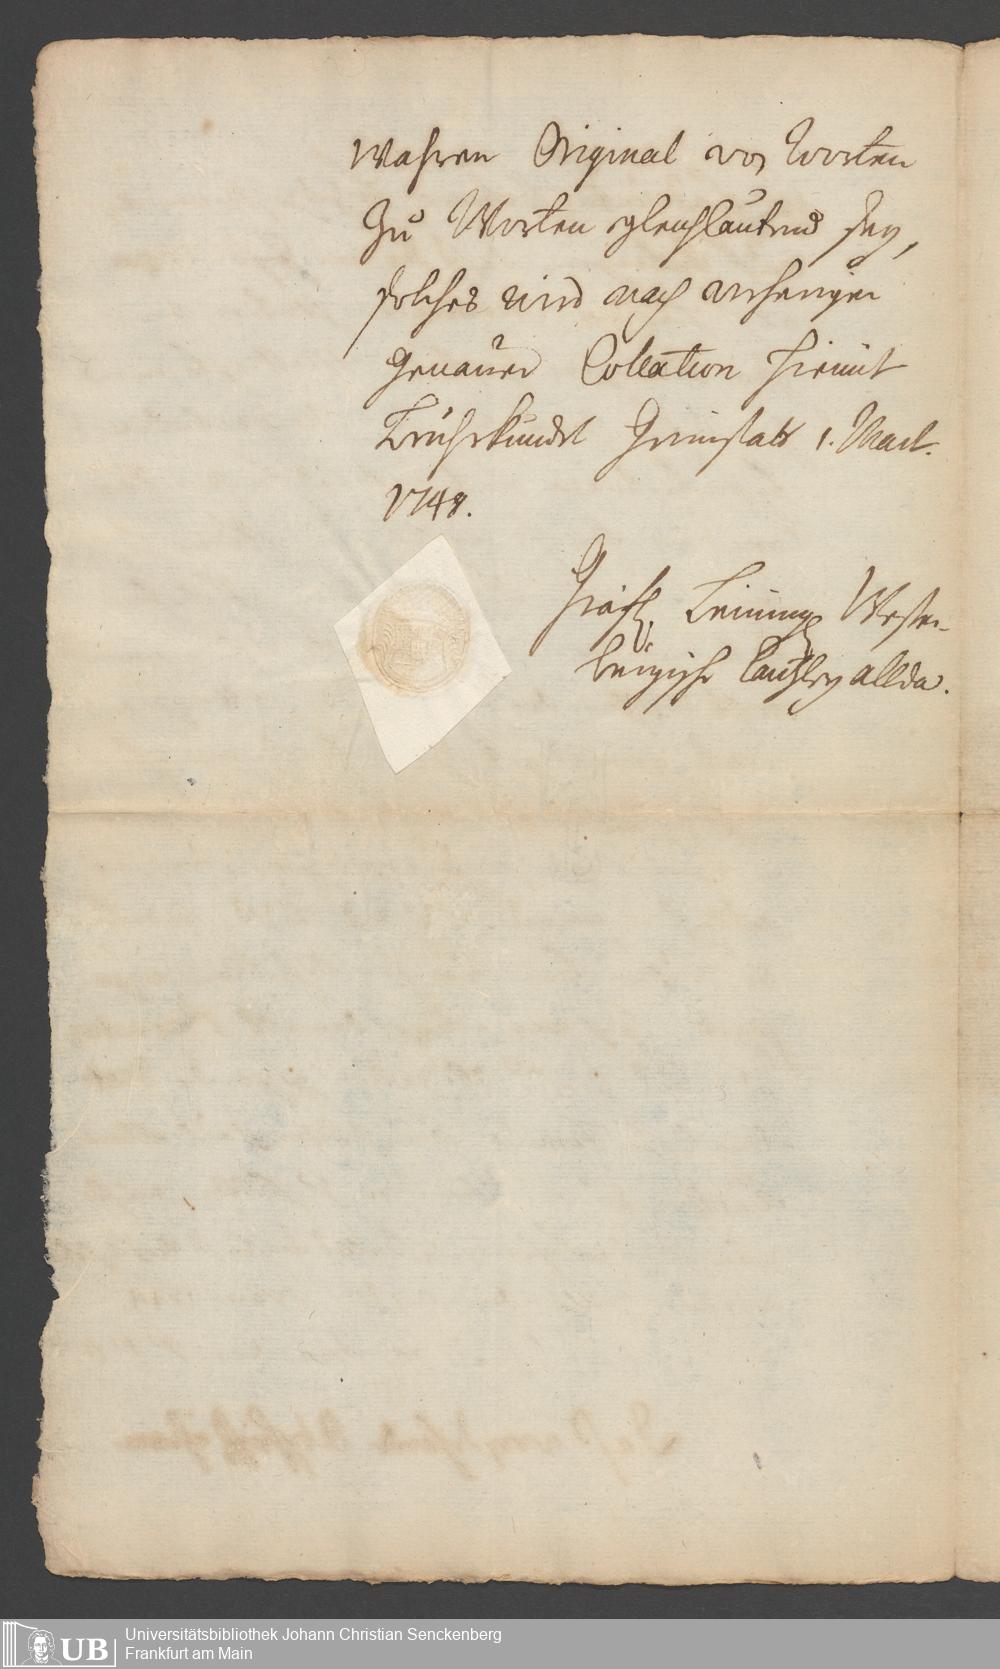 wahren Original von Worten
zu Worten gleichlautend sey,
solches wird nach vorheriger
genauer Collation hiemit
beuhrkundet Grünstatt 1. Mart.
1748.
Gräfl. Leining. Wester-
burgische Cantzley allda.
Universitätsbibliothek Johann Christian Senckenberg
Frankfurt am Main
UB